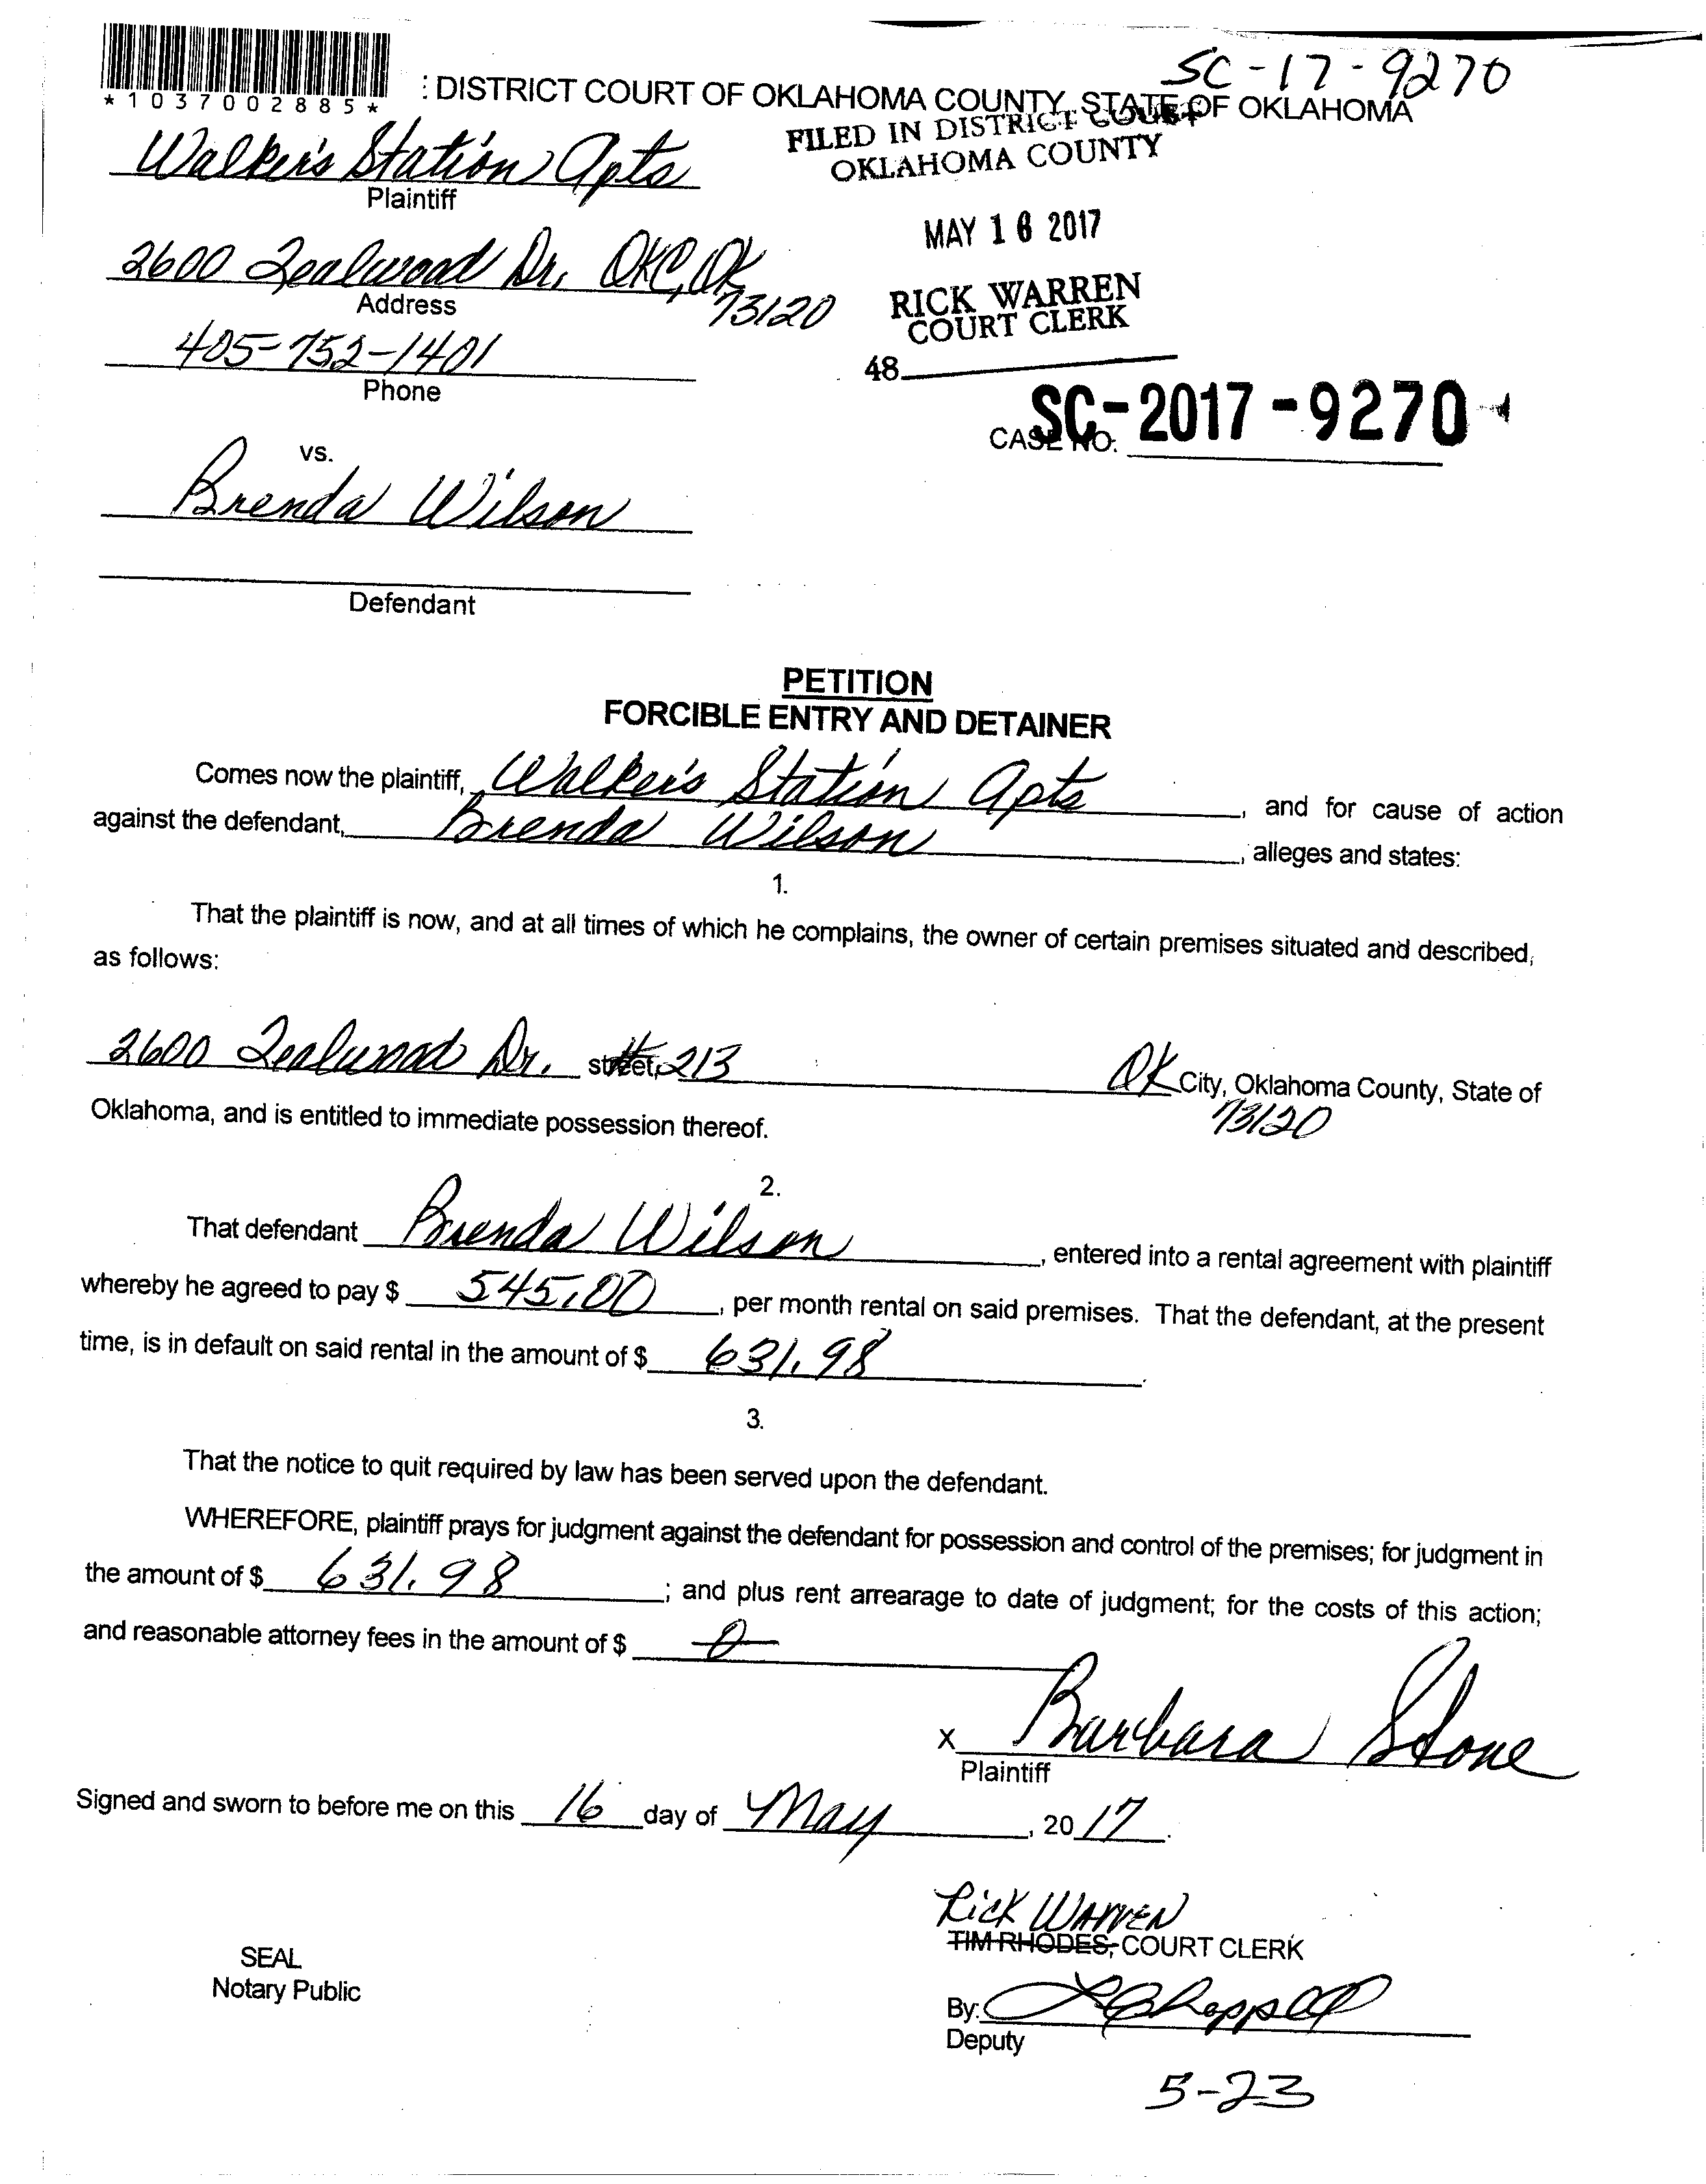 SC-17-9270
*1037002885*
: DISTRICT COURT OF OKLAHOMA COUNTY, STATE OF OKLAHOMA
FILED IN DISTRICT COURT
OKLAHOMA COUNTY
Walker's Station Apts
Plaintiff
MAY 16 2017
2600 Tealwood Dr. OKC, OK
73120
Address
RICK WARREN
COURT CLERK
405-752-1401
Phone
48
SC-2017-9270
CASE NO.
vs.
Brenda Wilson
Defendant
PETITION
FORCIBLE ENTRY AND DETAINER
Comes now the plaintiff, Walker's Station Apts, and for cause of action
against the defendant, Brenda Wilson, alleges and states:
1.
That the plaintiff is now, and at all times of which he complains, the owner of certain premises situated and described,
as follows:
2600 Tealwood Dr. street, # 213 OK City, Oklahoma County, State of
73120
Oklahoma, and is entitled to immediate possession thereof.
2.
That defendant Brenda Wilson, entered into a rental agreement with plaintiff
whereby he agreed to pay $ 545.00, per month rental on said premises. That the defendant, at the present
time, is in default on said rental in the amount of $ 631.98.
3.
That the notice to quit required by law has been served upon the defendant.
WHEREFORE, plaintiff prays for judgment against the defendant for possession and control of the premises; for judgment in
the amount of $ 631.98; and plus rent arrearage to date of judgment; for the costs of this action;
and reasonable attorney fees in the amount of $ 0
x Barbara Stone
Plaintiff
Signed and sworn to before me on this 16 day of May, 2017.
Rick Warren
TIM RHODES, COURT CLERK
SEAL
Notary Public
By:
Deputy
5-23